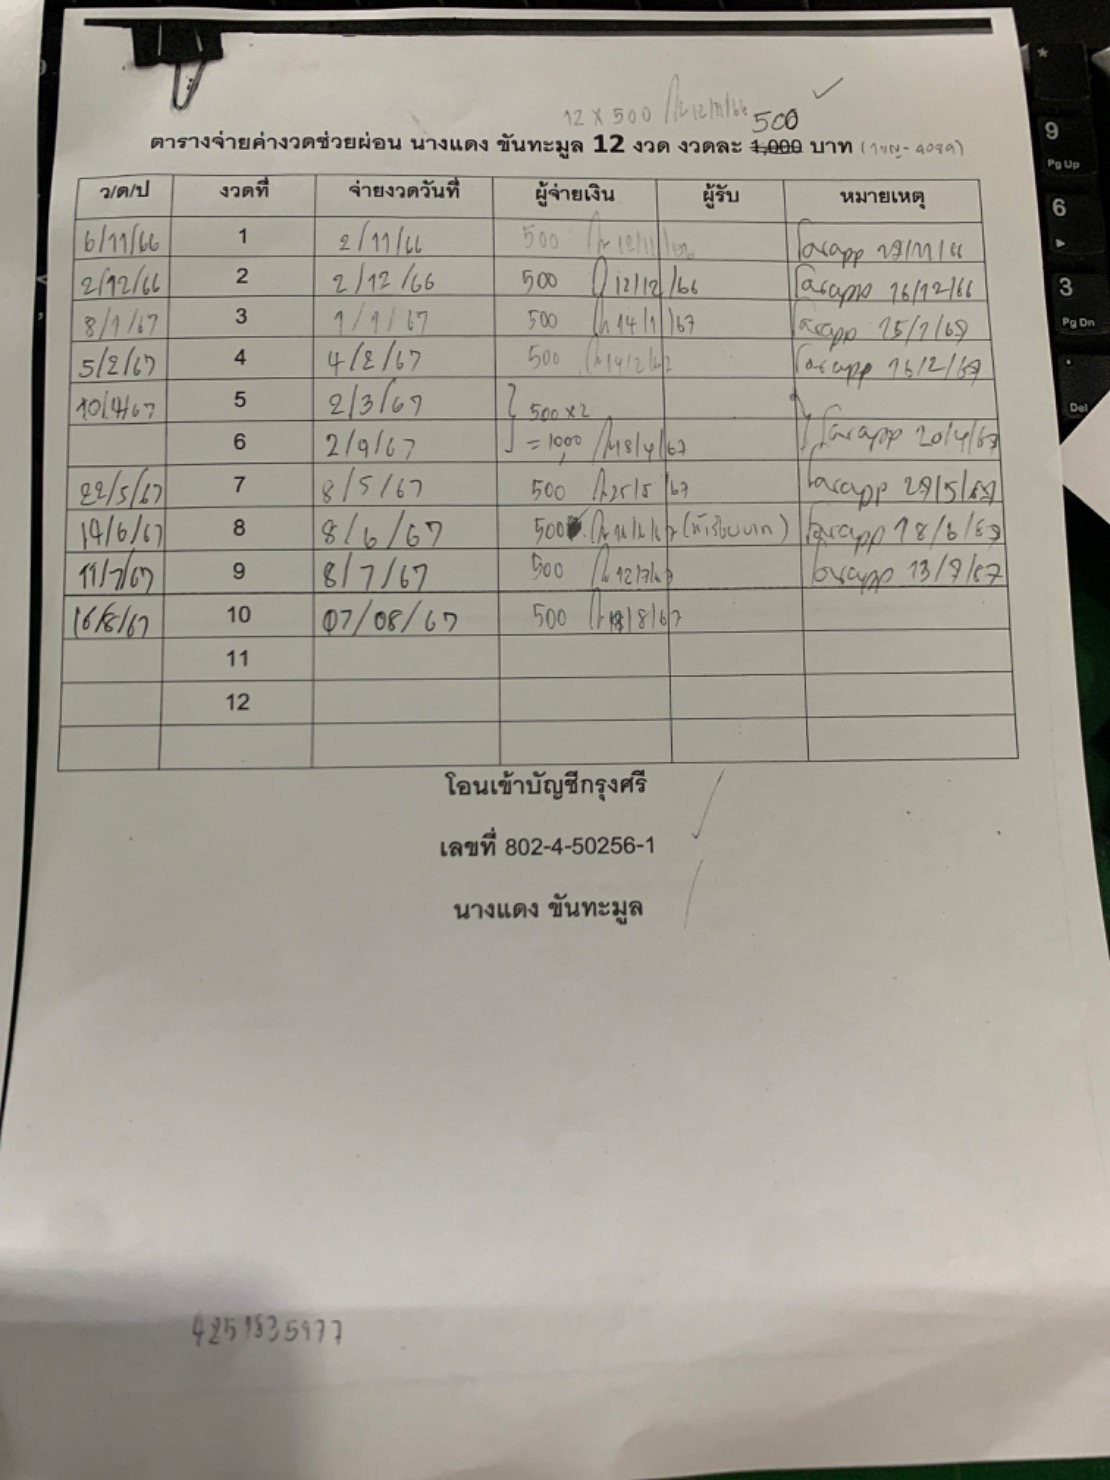 12 x 500 12/11/66
500
ตารางจ่ายค่างวดช่วยผ่อน นางแดง ขันทะมูล 12 งวด งวดละ 1,000 บาท
ว/ด/ป งวดที่ จ่ายงวดวันที่ ผู้จ่ายเงิน ผู้รับ หมายเหตุ
6/11/66 1 2/11/66 500 12/11/66
2/12/66 2 2/12/66 500 12/12/66 16/12/66
8/1/67 3 1/1/67 500 14/1/67 15/1/67
5/2/67 4 4/2/67 500 14/2/67 16/2/67
10/4/67 5 2/3/67 500 x 2
6 2/4/67 = 1,000 18/4/67 20/4/67
22/5/67 7 8/5/67 500 25/5/67 27/5/67
14/6/67 8 8/6/67 500 18/6/67
11/7/67 9 8/7/67 500 12/7/67 13/7/67
16/8/67 10 07/08/67 500 18/8/67
11
12
โอนเข้าบัญชีกรุงศรี
เลขที่ 802-4-50256-1
นางแดง ขันทะมูล